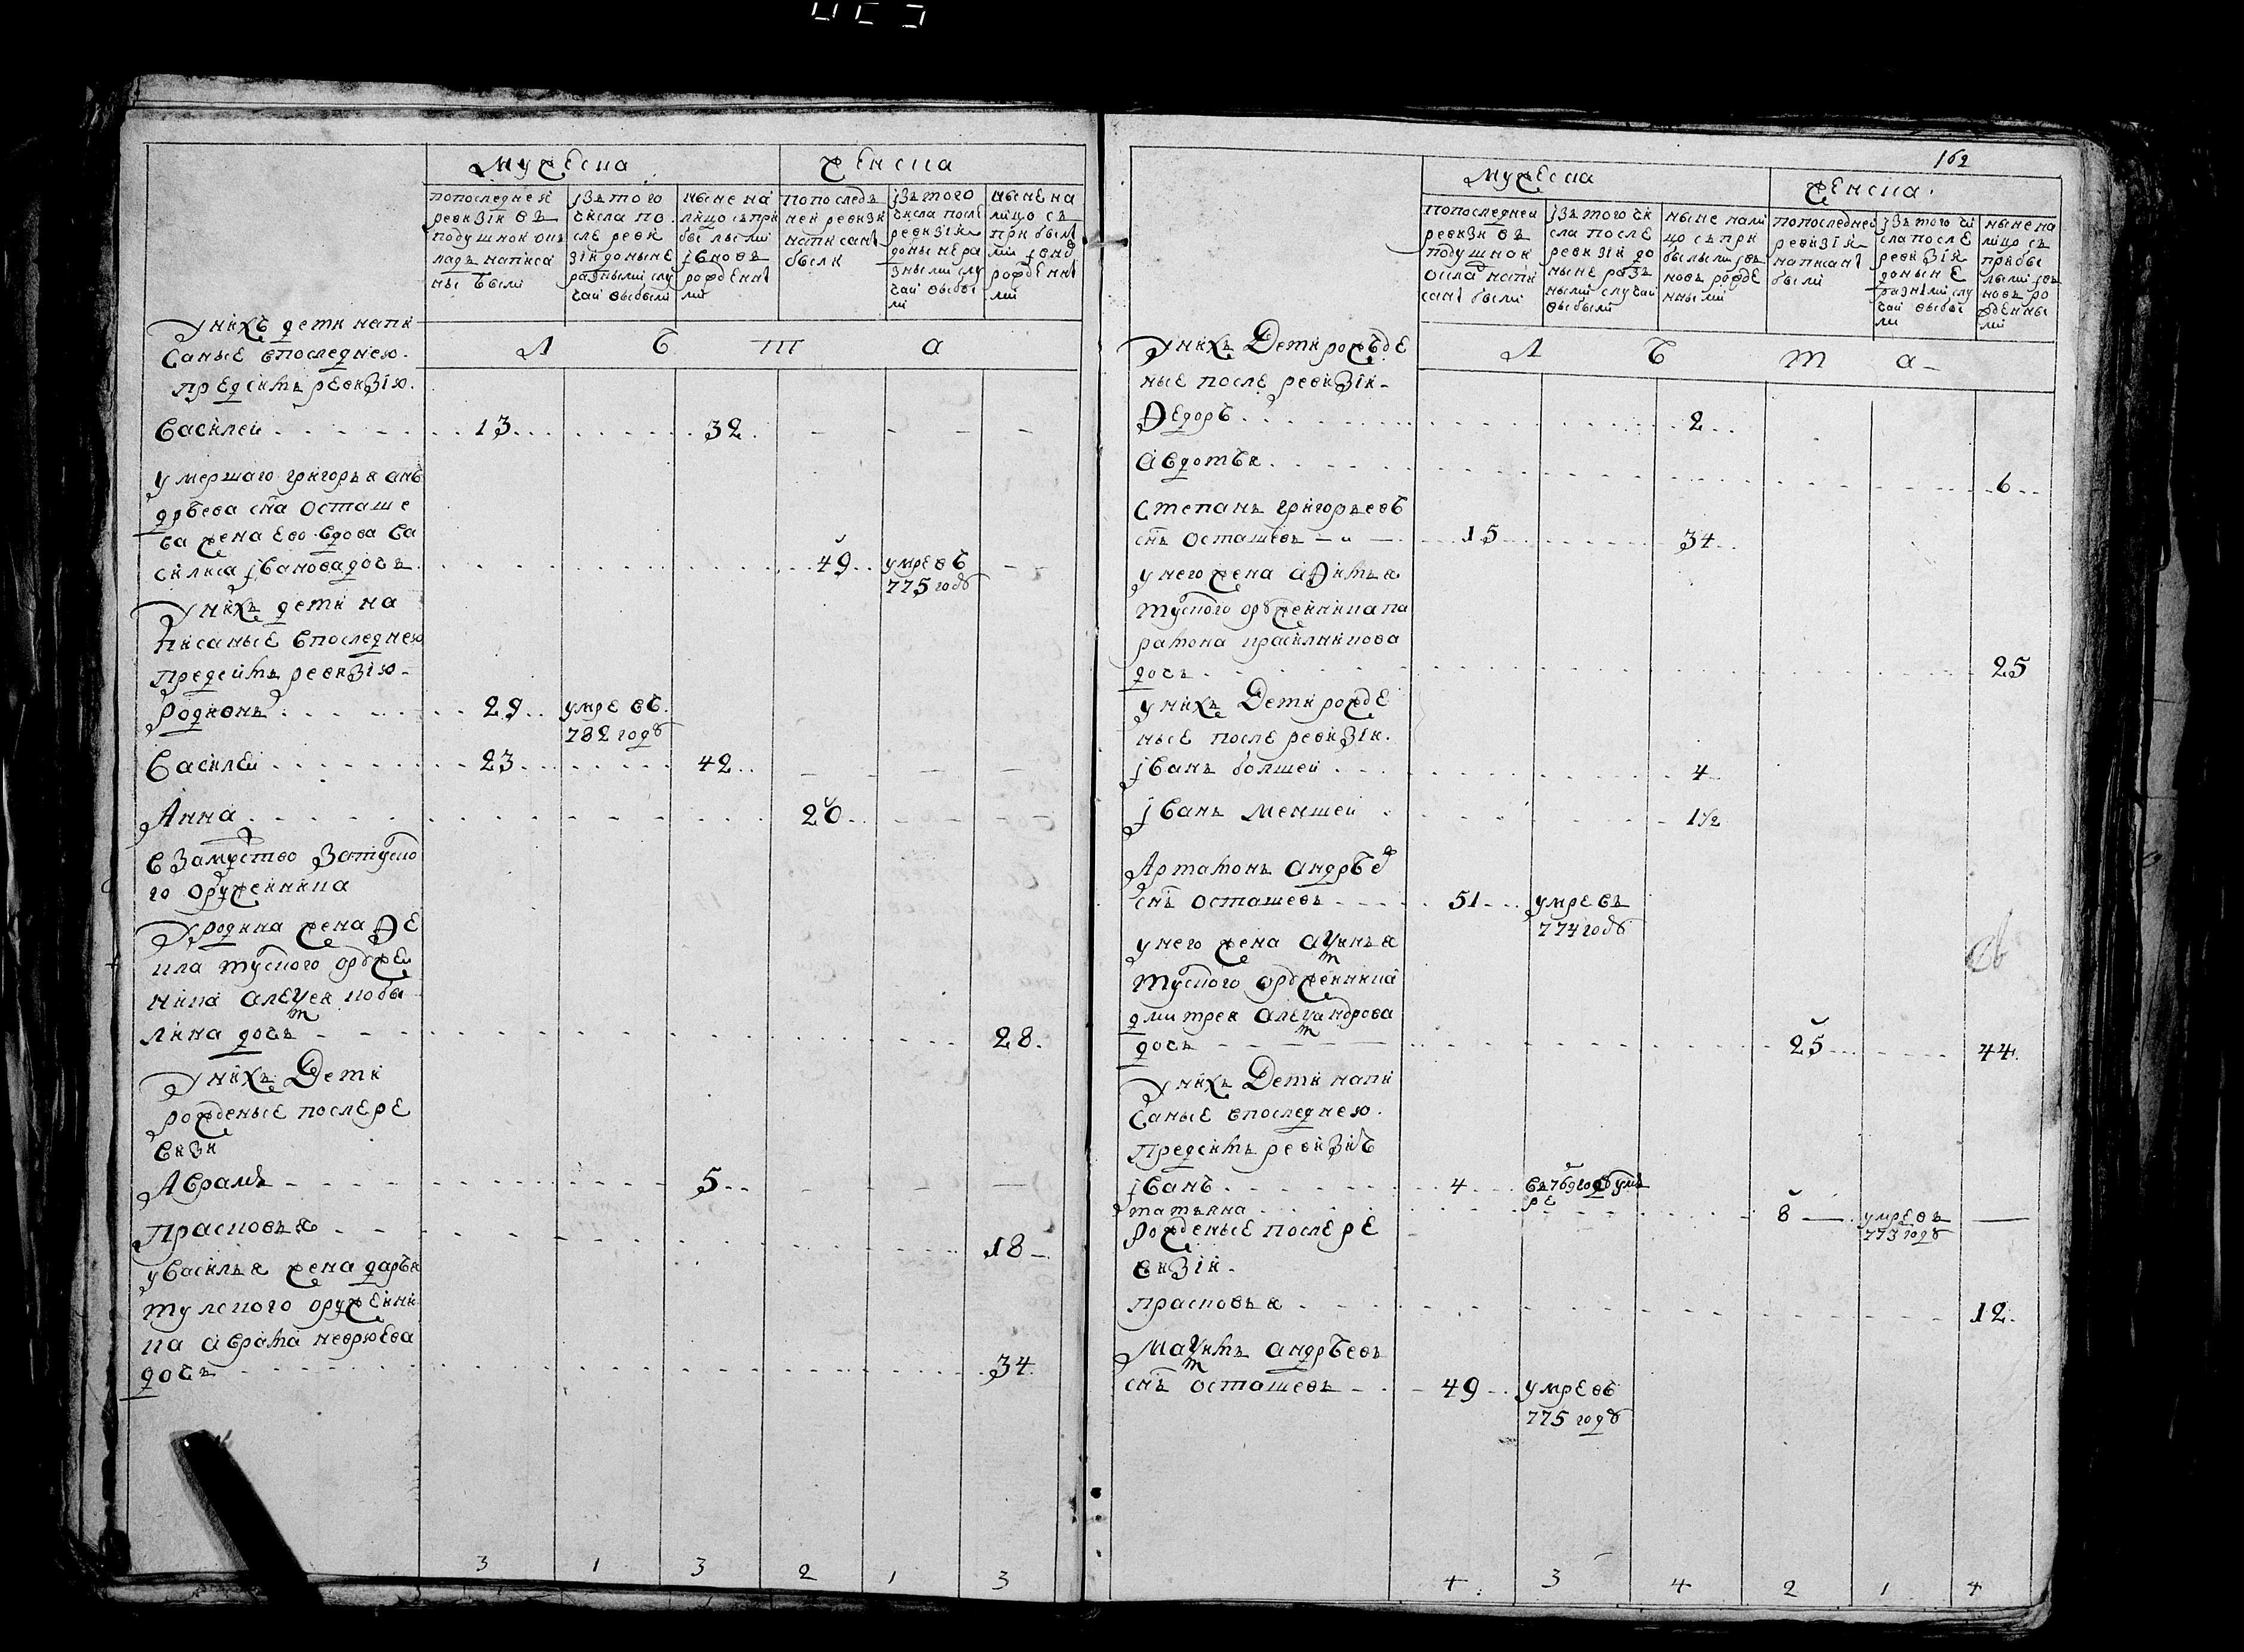 Мужеска
женска
попоследнея
ревизіи въ
подушнои ок
ладъ написа
ны были
ізъ того
числа по
сле реви
зіи доныне
разными слу
чаи выбыли
ныне на
лицо съ при
былыми
івновь
рожденны
ми
попоследъ
неи ревизи
написаны
были
ізъ того
числа после
ревизіи
доныне ра
зными слу
чаи выбы
ли
ныне на
лицо съ
прибылы
рожденны
ми
Л ѣ т а
Уникъ дети напи
саные впоследнею
предситъ ревизію
Василеи 13 32
умершаго григорья анъ
дрѣева сна осташе
ва жена ево вдова ва
силиса івановадочь 49 умре въ
775 годȣ
Унихъ дети на
писаные впоследнею
предсить ревизію
Родионъ 29 умре въ
782 годȣ
Василеи 23 42
Анна 20
взамуство затулско
го оруженника
Уродина жена Ѳе
кла тулского орȣжеи
ника
лина дочь 28
Унихъ Дети
рожденые после ре
визи
Аврамъ 5
Прасковья 18
уВасилья жена дарья
тулского оружеини
ка неврюева
дочь 34
3 1 3 2 1 3
162
Мужеска
женска
попоследнеи
ревизи въ
подушнои
окладъ напи
саны были
ізъ того чи
сла после
ревизіи до
ныне разъ
ными случаи
выбыли
ныне нали
цо съ при
былыми івъ
новь рожде
нными
попоследнеи
ревизіи
написаны
были
ізъ того чи
сла после
ревизіи
доныне
разными слу
чаи выбы
ли
ныне на
лицо съ
прибы
лыми івъ
новь ро
жденны
ми
Унихъ Дети рожъде
ные после ревизіи
Л ѣ т а
Ѳедоръ 2
Авдотья 6
Степанъ григорьевъ
снъ Осташевъ 15 34
унего жена
тулского орȣженника па
ратона красилникова
дочь 25
унихъ Дети рожде
ные после ревизіи
іванъ болшеи 4
іванъ меншеи 1 1/2
Артамонъ андрѣе
снъ осташевъ 51 умре въ
774 годȣ
унего жена
тулского орȣженника
дмитрея
дочь 25 44
Унихъ Дети напи
саные впоследнею
предсить ревизиѣ
іванъ 4 въ 769 годȣ умъ
ре
татьяна 8 умре въ
773 годȣ
Рожденые после ре
визіи
прасковья 12
андрѣевъ
снъ осташевъ 49 умре въ
775 годȣ
4 3 4 2 1 4